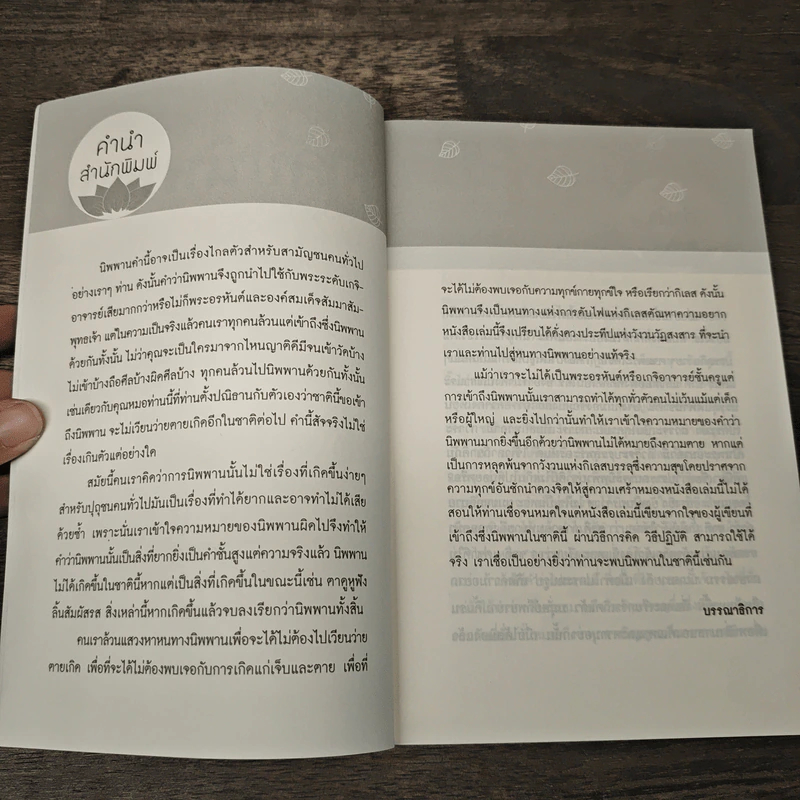 คำนำ
สำนักพิมพ์
นิพพานคำนี้อาจเป็นเรื่องไกลตัวสำหรับสามัญชนคนทั่วไป
อย่างเราๆ ท่าน ดังนั้นคำว่านิพพานจึงถูกนำไปใช้กับพระระดับเกจิ-
อาจารย์เสียมากกว่าหรือไม่ก็พระอรหันต์และองค์สมเด็จสัมมาสัม-
พุทธเจ้า แต่ในความเป็นจริงแล้วคนเราทุกคนล้วนแต่เข้าถึงซึ่งนิพพาน
ด้วยกันทั้งนั้น ไม่ว่าคุณจะเป็นใครมาจากไหนญาติดีมีจนเข้าวัดบ้าง
ไม่เข้าบ้างถือศีลบ้างผิดศีลบ้าง ทุกคนล้วนไปนิพพานด้วยกันทั้งนั้น
เช่นเดียวกับคุณหมอท่านนี้ที่ท่านตั้งปณิธานกับตัวเองว่าชาตินี้ขอเข้า
ถึงนิพพาน จะไม่เวียนว่ายตายเกิดอีกในชาติต่อไป คำนี้สัจจริงไม่ใช่
เรื่องเกินตัวแต่อย่างใด
สมัยนี้คนเราคิดว่าการนิพพานนั้นไม่ใช่เรื่องที่เกิดขึ้นง่ายๆ
สำหรับปุถุชนคนทั่วไปมันเป็นเรื่องที่ทำได้ยากและอาจทำไม่ได้เสีย
ด้วยซ้ำ เพราะนั่นเราเข้าใจความหมายของนิพพานผิดไปจึงทำให้
คำว่านิพพานนั้นเป็นสิ่งที่ยากยิ่งเป็นคำชั้นสูงแต่ความจริงแล้ว นิพพาน
ไม่ได้เกิดขึ้นในชาตินี้หากแต่เป็นสิ่งที่เกิดขึ้นในขณะนี้เช่น ตาดูหูฟัง
ลิ้นสัมผัสรส สิ่งเหล่านี้หากเกิดขึ้นแล้วจบลงเรียกว่านิพพานทั้งสิ้น
คนเราล้วนแสวงหาหนทางนิพพานเพื่อจะได้ไม่ต้องไปเวียนว่าย
ตายเกิด เพื่อที่จะได้ไม่ต้องพบเจอกับการเกิดแก่เจ็บและตาย เพื่อที่
จะได้ไม่ต้องพบเจอกับความทุกข์กายทุกข์ใจ หรือเรียกว่ากิเลส ดังนั้น
นิพพานจึงเป็นหนทางแห่งการดับไฟแห่งกิเลสตัณหาความอยาก
หนังสือเล่มนี้จึงเปรียบได้ดั่งดวงประทีปแห่งวังวนวัฏสงสาร ที่จะนำ
เราและท่านไปสู่หนทางนิพพานอย่างแท้จริง
แม้ว่าเราจะไม่ได้เป็นพระอรหันต์หรือเกจิอาจารย์ชั้นครูแต่
การเข้าถึงนิพพานนั้นเราสามารถทำได้ทุกทั่วตัวคนไม่เว้นแม้แต่เด็ก
หรือผู้ใหญ่ และยิ่งไปกว่านั้นทำให้เราเข้าใจความหมายของคำว่า
นิพพานมากยิ่งขึ้นอีกด้วยว่านิพพานไม่ได้หมายถึงความตาย หากแต่
เป็นการหลุดพ้นจากวังวนแห่งกิเลสบรรลุซึ่งความสุขโดยปราศจาก
ความทุกข์อันชักนำดวงจิตให้สู่ความเศร้าหมองหนังสือเล่มนี้ไม่ได้
สอนให้ท่านเชื่อจนหมดใจแต่หนังสือเล่มนี้เขียนจากใจของผู้เขียนที่
เข้าถึงซึ่งนิพพานในชาตินี้ ผ่านวิธีการคิด วิธีปฏิบัติ สามารถใช้ได้
จริง เราเชื่อเป็นอย่างยิ่งว่าท่านจะพบนิพพานในชาตินี้เช่นกัน
บรรณาธิการ